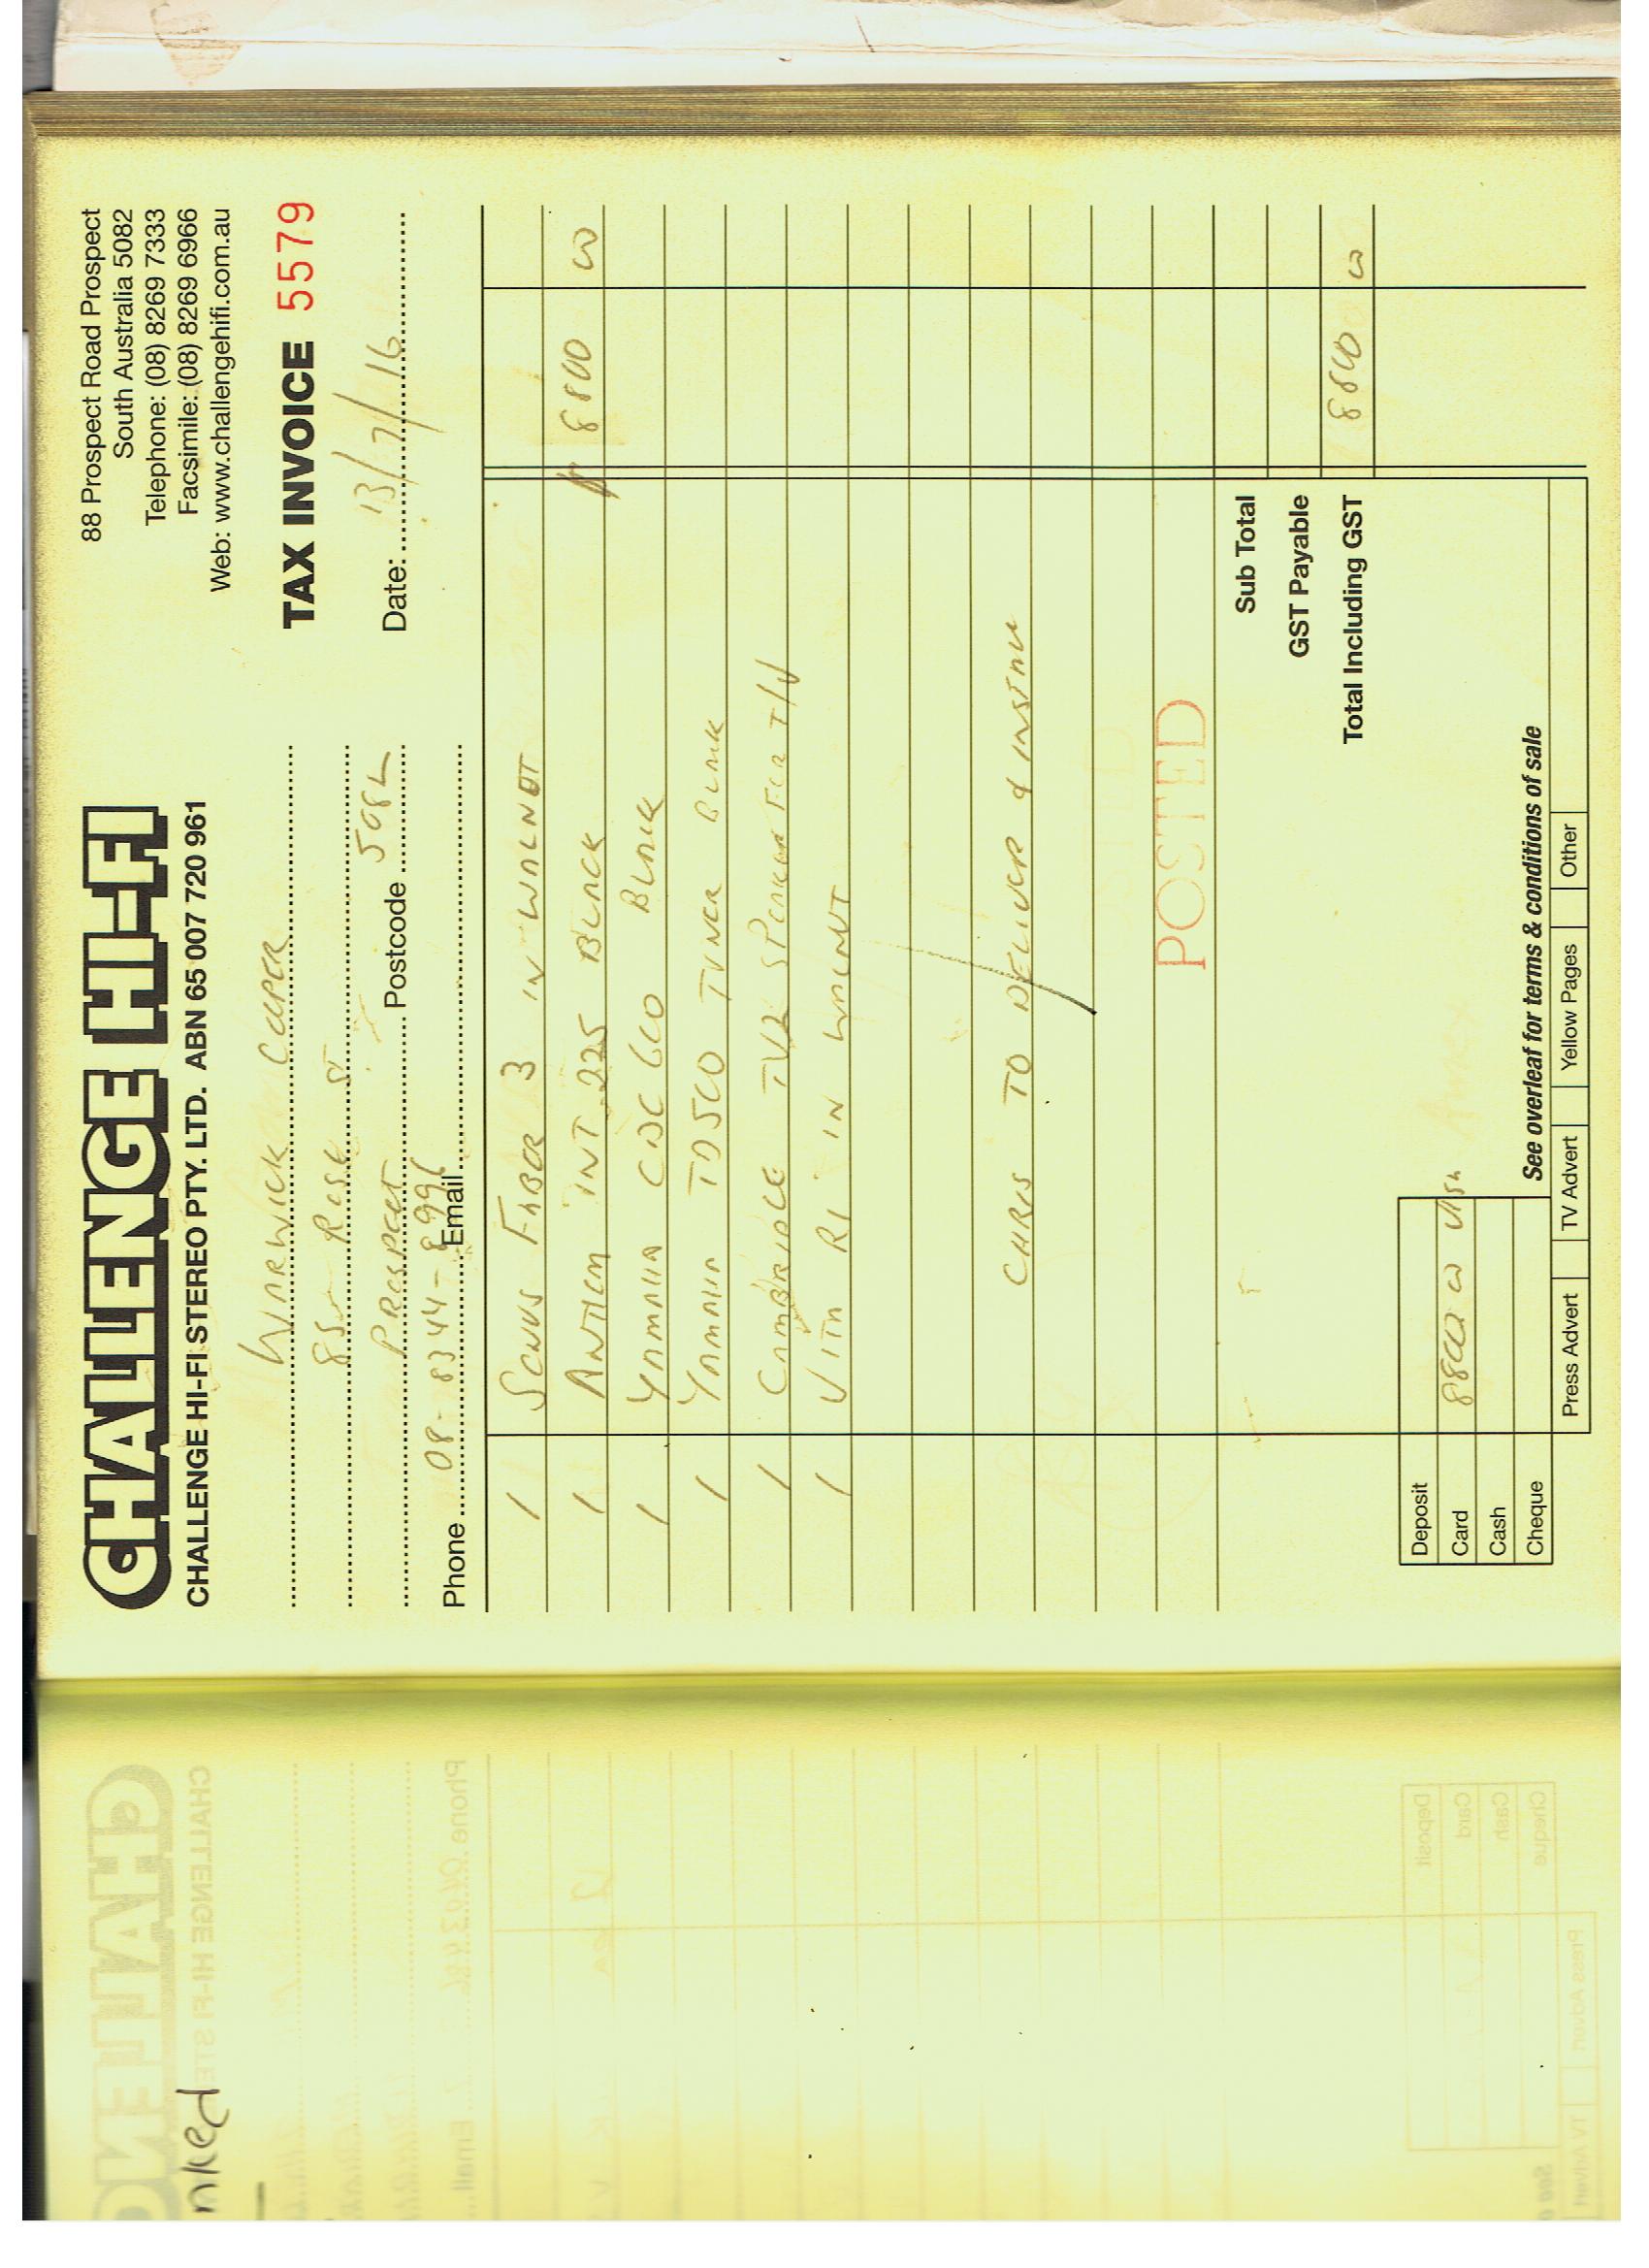 CHALLENGE HI-FI
CHALLENGE HI-FI STEREO PTY. LTD. ABN 65 007 720 961
88 Prospect Road Prospect
South Australia 5082
Telephone: (08) 8269 7333
Facsimile: (08) 8269 6966
Web: www.challengehifi.com.au
TAX INVOICE 5579
WARWICK
Date: 13/7/16
PROSPECT Postcode 5082
Phone 08-8344- Email
1 SONUS FABER 3 IN WALNUT
1 ANTHEM INT 225 BLACK 8800 00
1 YAMAHA CDC 600 BLACK
1 YAMAHA TD500 TUNER BLACK
1 CAMBRIDGE TV2 SPEAKER FOR T/V
1 VITA R1 IN WALNUT
CHRIS TO DELIVER & INSTALL
POSTED
Sub Total
GST Payable
Total Including GST 8800 00
Deposit
Card 8800 00 VISA
Cash
Cheque
See overleaf for terms & conditions of sale
Press Advert TV Advert Yellow Pages Other